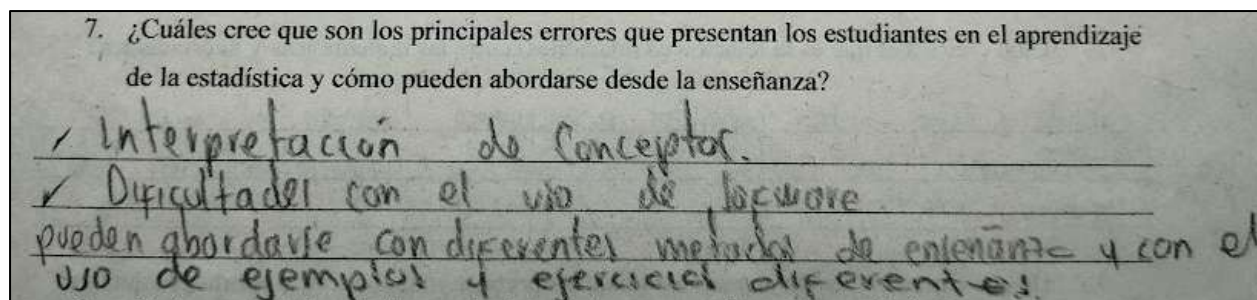 7. ¿Cuáles cree que son los principales errores que presentan los estudiantes en el aprendizaje
de la estadística y cómo pueden abordarse desde la enseñanza?
✓ Interpretación de Conceptos.
✓ Dificultades con el uso de sofware
pueden abordarse con diferentes metodos de enseñanza y con el
uso de ejemplos y ejercicios diferentes.